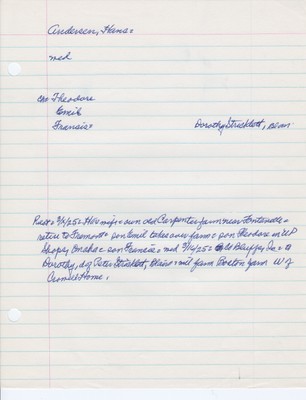 Andersen, Hans=
md
ch: Theodore
Emil
Francis= Dorothy Stricklett, Blair
Pilot= 3/5/25= He & wife= own old Carpenter farm near Fontanelle=
retire to Fremont= son Emil takes over farm= son Theodore in UP
Shops, Omaha= son Francis= md 3/16/25= Co Bluffs, Ia= to
Dorothy, dg Peter Stricklett, Blair= will farm Boston farm W of
Crowell Home.